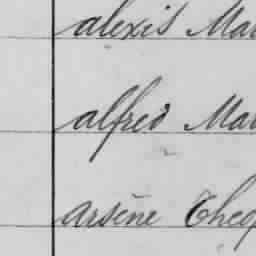 alexis Mar
alfred Mar
arsène Theo